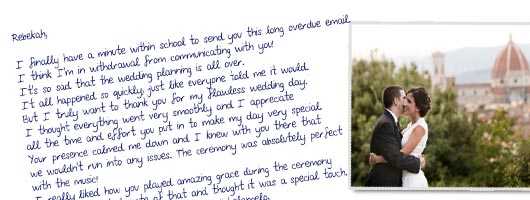 Rebekah,
I finally have a minute within school to send you this long overdue email.
I think I'm in withdrawal from communicating with you!
It's so sad that the wedding planning is all over.
It all happened so quickly, just like everyone told me it would.
But I truly want to thank you for my flawless wedding day.
I thought everything went very smoothly and I appreciate
all the time and effort you put in to make my day very special.
Your presence calmed me down and I knew with you there that
we wouldn't run into any issues. The ceremony was absolutely perfect
with the music!
I really liked how you played amazing grace during the ceremony
of that and thought it was a special touch.